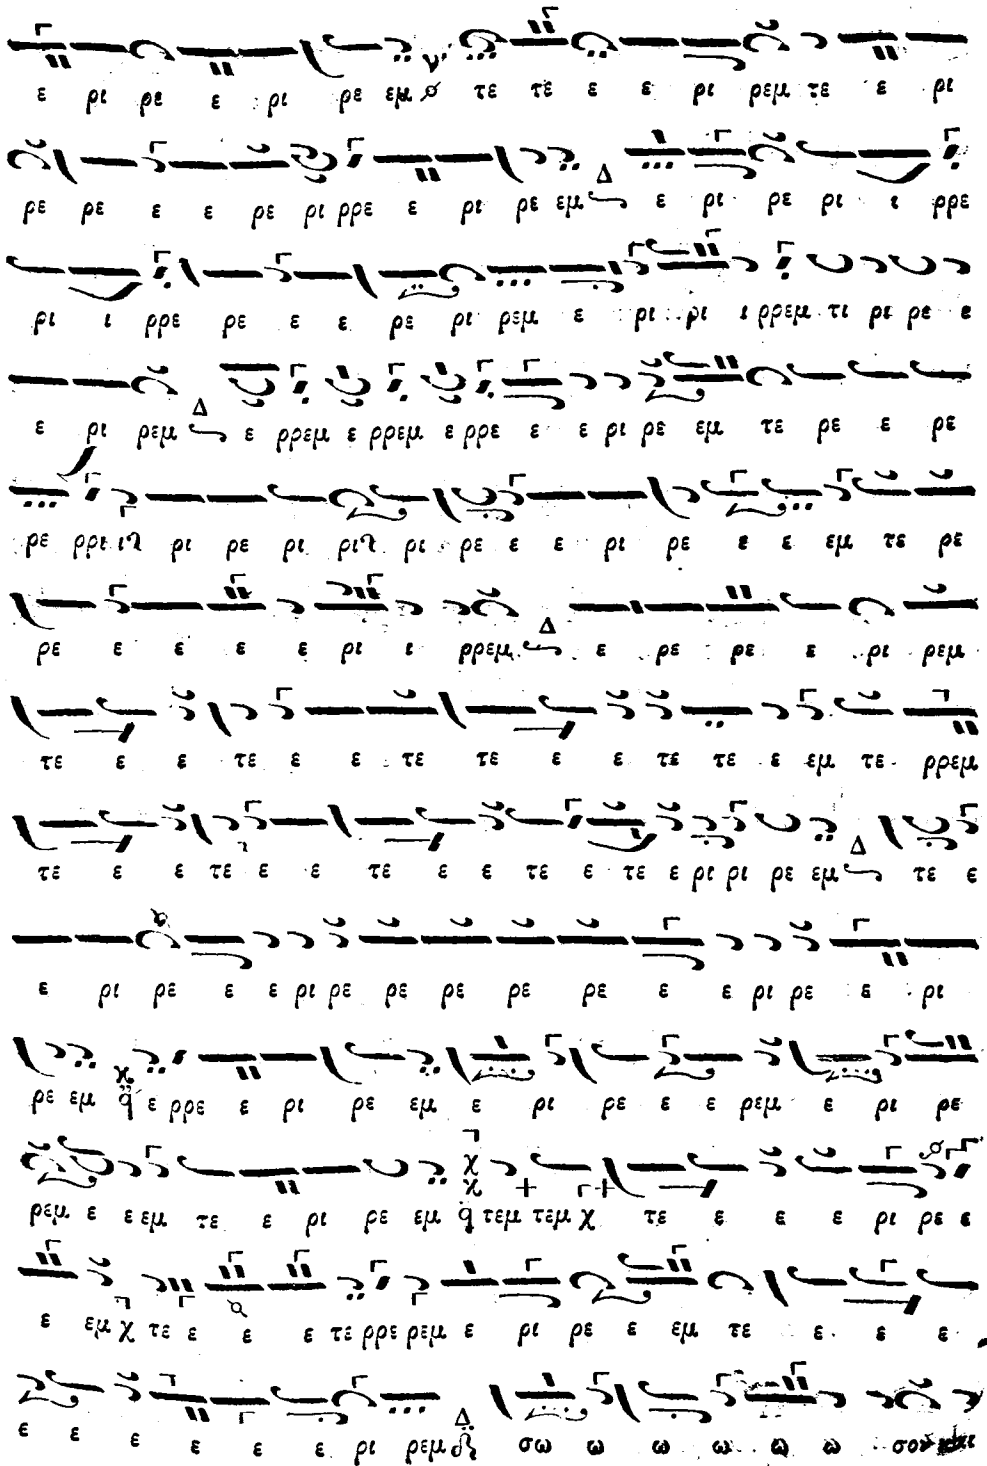 ε ρι ρε ε ρι ρε εμ ν' τε τε ε ε ρι ρεμ τε ε ρι
ρε ρε ε ε ρε ρι ρρε ε ρι ρε εμ Δ ε ρι ρε ρι ι ρρε
ρι ι ρρε ρε ε ε ρε ρι ρεμ ε ρι ρι ι ρρεμ τι ρι ρε ε
ε ρι ρεμ Δ ε ρρεμ ε ρρεμ ε ρρε ε ε ρι ρε εμ τε ρε ε ρε
ρε ρρι ρι ρε ρι ρι ρε ε ε ρι ρε ε ε εμ τε ρε
ρε ε ε ε ε ρι ι ρρεμ Δ ε ρε ρε ε ρι ρεμ
τε ε ε τε ε ε τε τε ε ε τε τε ε εμ τε ρρεμ
τε ε ε τε ε ε τε ε ε τε ε τε ε ρι ρι ρε εμ Δ τε ε
ε ρι ρε ε ε ρι ρε ρε ρε ρε ρε ε ε ρι ρε ε ρι
ρε εμ q ε ρρε ε ρι ρε εμ ε ρι ρε ε ε ρεμ ε ρι ρε
ρεμ ε ε εμ τε ε ρι ρε εμ q τεμ τεμ χ τε ε ε ε ρι ρε ε
ε εμ χ τε ε ε ε τε ρρε ρεμ ε ρι ρε ε εμ τε ε ε ε
ε ε ε ε ε ε ρι ρεμ Δ σω ω ω ω ω ω σον